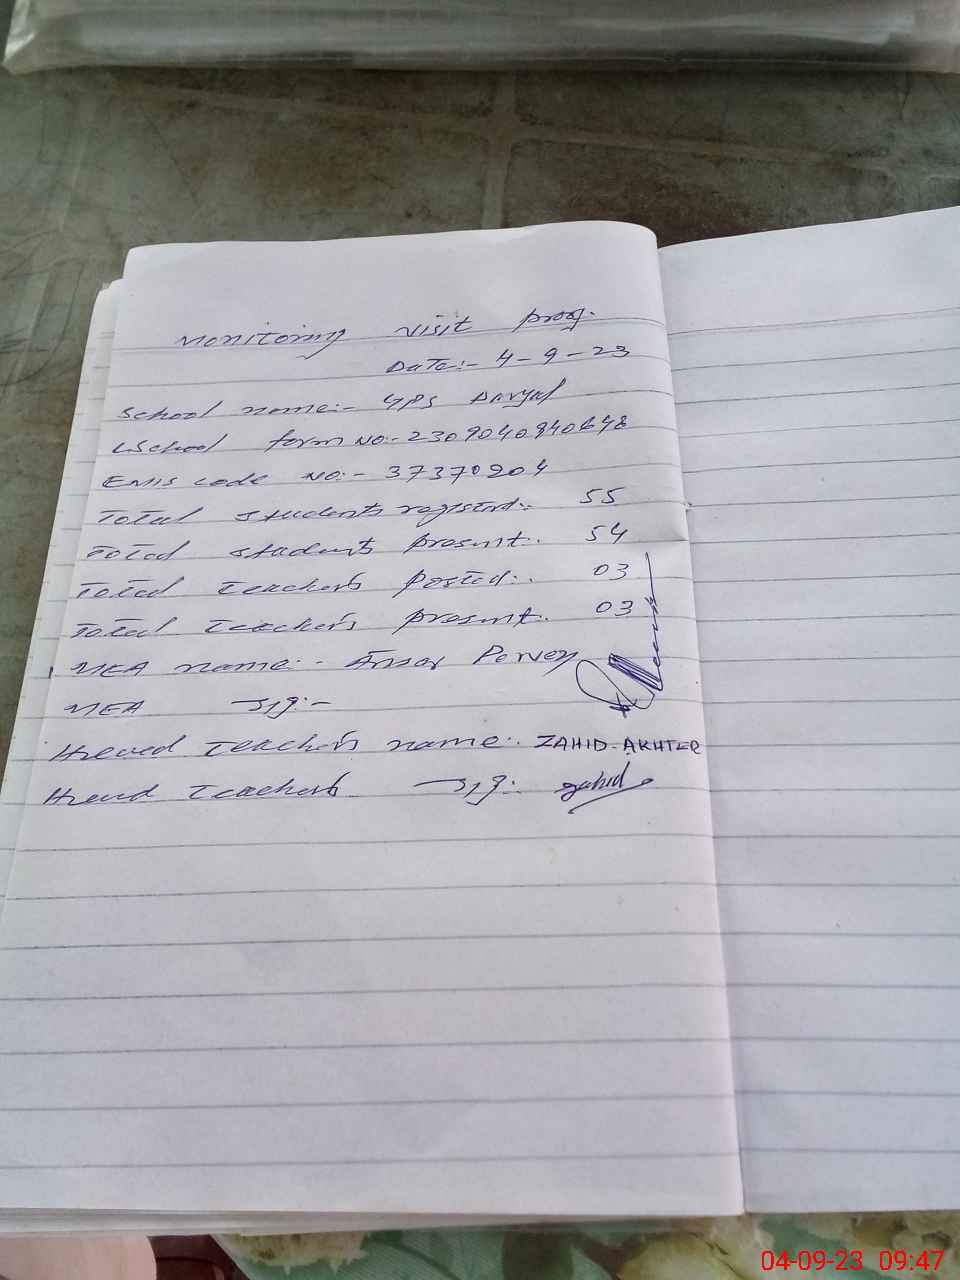 Monitoring visit prog.
Date:- 4-9-23
School name:- GPS Daryal
School form No:- 2309040940648
EMIS code No:- 37370204
Total students registerd:. 55
Total students present:. 54
Total teachers posted:. 03
Total teachers present:. 03
MEA name:- Ansar Perven
MEA sig:-
Head teacher's name:. ZAHID-AKHTER
Head teachers sig:. Zahid
04-09-23 09:47